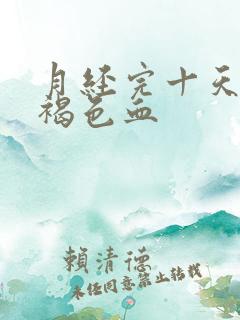 月経完十天
褐色血
賴清德
未经同意禁止转载